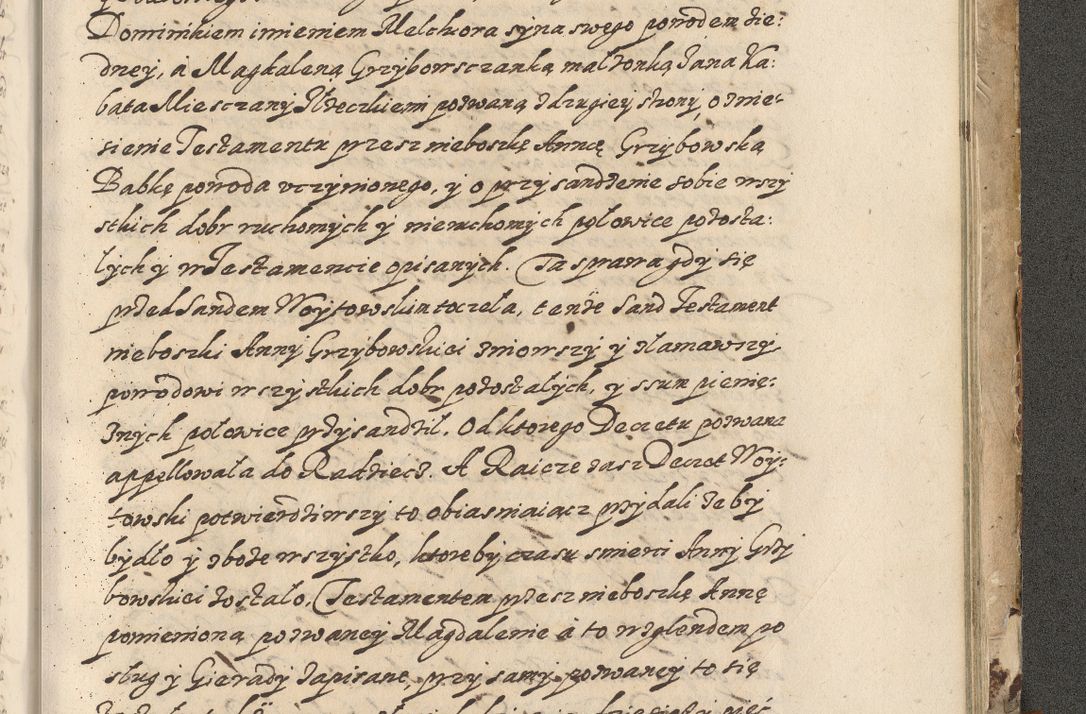 Dominikiem imieniem Melchiora syna swego powodem ie:
dney, á Magdaleną Grzybowsczanką małżonką Jana Ka:
bata Miesczany Iłżeczkiemi pozwaną z drugiey strony, o znie:
sienie Testamentu przesz nieboszkę Annę Grzybowską
Babkę powoda vczynionego, y o przysandzenie sobie wszy
stkich dobr ruchomych y nieruchomych połowice pozosta:
łych y w Testamencie opisanych. Ta sprawa gdy się
przed Sandem Woytowskim toczeła, tenże Sand Testament
nieboszki Anny Grzybowskiei zniowszy y złamawszy
powodowi wszystkich dobr pozostałych, y ssum pienię:
znych połowice przysandził. Od ktorego Decretu pozwana
appellowała do Radziecz. A Raicze zasz Decret Woy:
towski potwierdziwszy to obiasniaiącz przydali żeby
bydło y zboże wszystko, ktoreby czasu smierci Anny Grzy
bowskiei zostało, Testamentem przesz nieboszkę Annę
pomienioną pozwaney Magdalenie á to wzglendem po
sług y Gierady zapisane, przy samy pozwaney to się